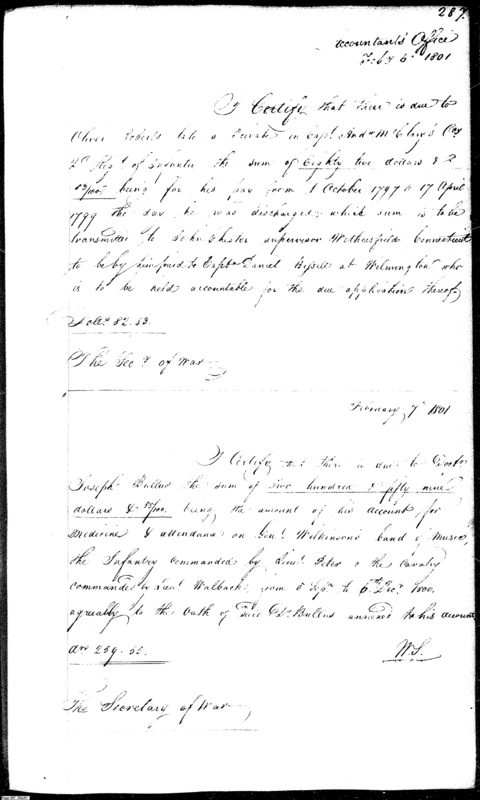 287.
Accountants Office
Feby 6th 1801
I Certify that there is due to
Oliver Roberts late a Private in Capt. Andw McClary's Coy
2d Regt of Infantry the sum of Eighty two dollars &
53/100 being for his pay from 1 October 1797 to 17 April
1799 the day he was discharged; which sum is to be
transmitted to John Chester supervisor Wethersfield Connecticut
to be by him to Capt. Daniel Bissell at Wilmington who
is to be held accountable for the due application thereof
Dolls 82.53.
The Secy of War
February 7th 1801
I Certify that there is due to Doctr
Joseph Bullus the sum of Two hundred & fifty nine
dollars & 55/100. being the amount of his account for
Medicine & attendance on Genl Wilkinson's band of Music,
the Infantry commanded by Lieut Peter & the Cavalry
commanded by Lieut Walback, from 5 Sepr to 6th Decr 1800,
agreeably to the Oath of said Dr Bullus annexed to his account
259.55.
W.S.
The Secretary of War